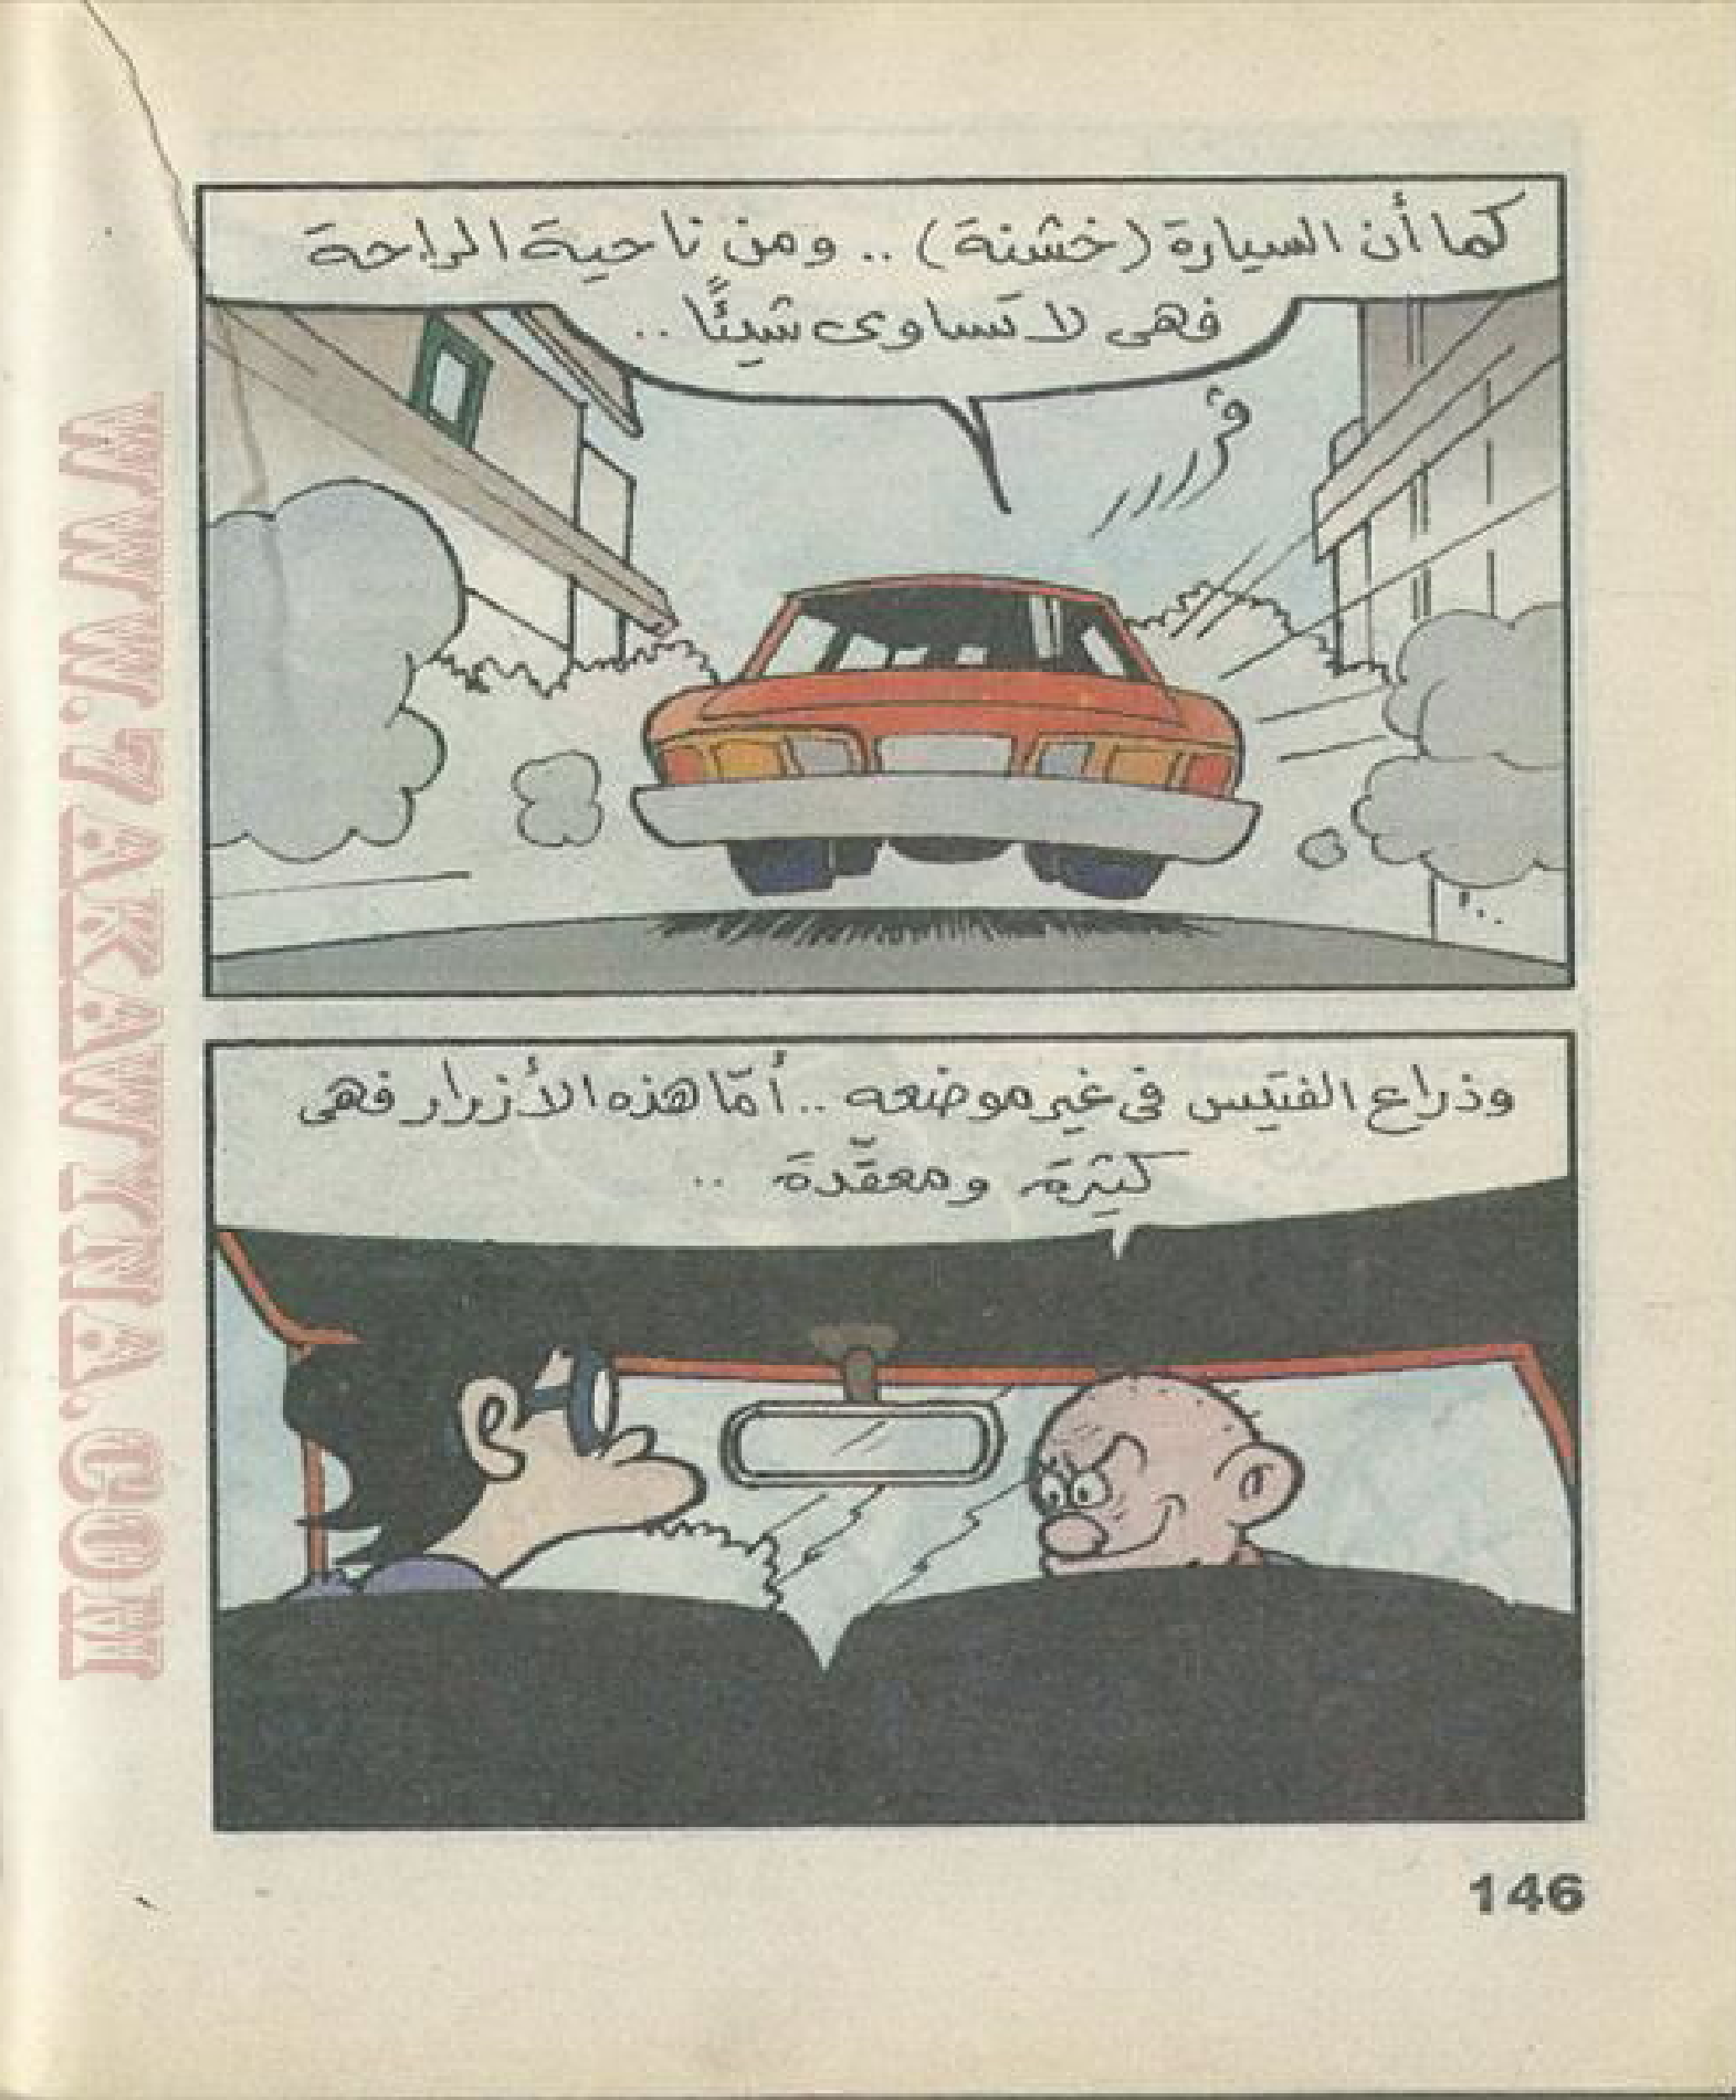 كما أن السيارة (خشنة) .. ومن ناحية الراحة
فهى لا تساوى شيئًا ..
وذراع الفتيس فى غير موضعه .. أمّا هذه الأزرار فهى
كثيرة ومعقّدة ..
146
WWW.7AKAWITNA.COM